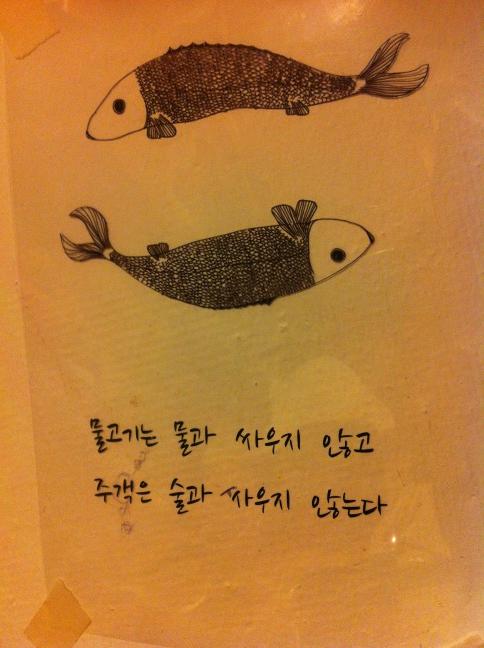 물고기는 물과 싸우지 않고
주객은 술과 싸우지 않는다